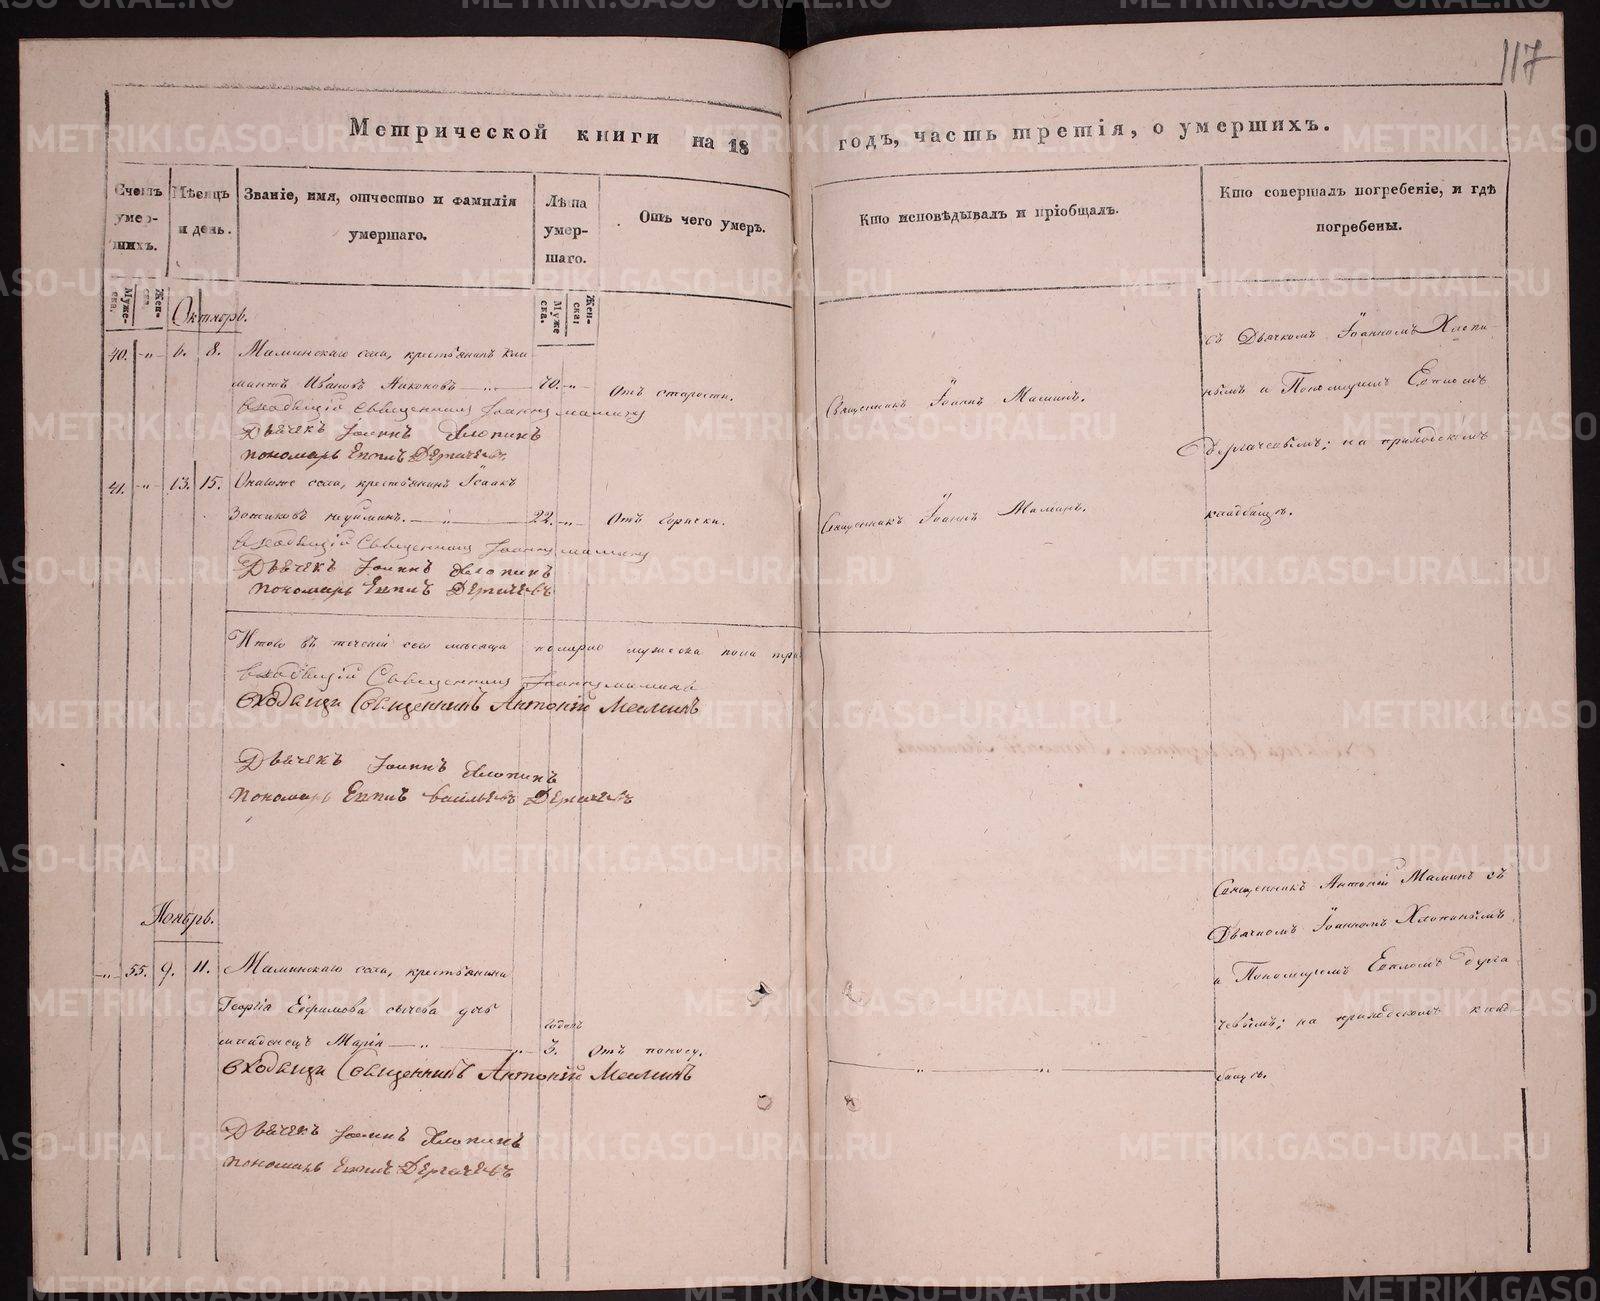 117
Метрической книги на 18 годъ, часть третія, о умершихъ.
Счетъ умер-шихъ.
Муже-ска.
Жен-ска.
Мѣсяцъ и день.
Званіе, имя, отчество и фамилія умершаго.
Лѣта умер-шаго.
Муже ска.
Жен-ска:
Отъ чего умеръ.
Кто исповѣдывалъ и пріобщалъ.
Кто совершалъ погребеніе, и гдѣ погребены.
Октябрь.
40. -„- 6. 8. Маминскаго села, крестьянинъ Кли
Ивановъ Никоновъ 70. -„- Отъ старости.
Священникъ Іоаннъ Маминъ.
съ Дьячкомъ Іоанномъ Хлопи-
нымъ и Пономаремъ Евпломъ
Дергачевымъ; на приходскомъ
кладбищѣ.
Священникъ Іоаннъ Маминъ
Дьячекъ Іоаннъ Хлопинъ
пономарь Евплъ Дергачевъ
41. -„- 13. 15. Онагоже села, крестьянинъ Исаакъ
22. -„- Отъ горячки.
Священникъ Іоаннъ Маминъ.
Священникъ Іоаннъ Маминъ
Дьячекъ Іоаннъ Хлопинъ
пономарь Евплъ Дергачевъ
Итого въ теченіи сего мѣсяца померло мужеска пола три
Священникъ Іоаннъ Маминъ
Священникъ Антоній Маминъ
Дьячекъ Іоаннъ Хлопинъ
Пономарь Евплъ Дергачевъ
Ноябрь.
-„- 55. 9. 11. Маминскаго села, крестьянина
Георгія Ефимова Сычева дочь
младенецъ Марія -„- 3. Отъ поносу.
годовъ
Священникъ Антоній Маминъ съ
Дьячкомъ Іоанномъ Хлопинымъ
и Пономаремъ Евпломъ Дерга
чевымъ; на приходскомъ клад-
бищѣ.
Священникъ Антоній Маминъ
Дьячекъ Іоаннъ Хлопинъ
пономарь Евплъ Дергачевъ
METRIKI.GASO-URAL.RU